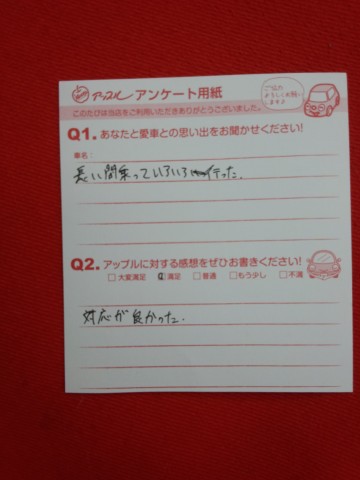 アップル アンケート用紙
ご協力
よろしくお願い
します♪
このたびは当店をご利用いただきありがとうございました。
Q1. あなたと愛車との思い出をお聞かせください!
車名:
長い間乗っていろいろ行った.
Q2. アップルに対する感想をぜひお書きください!
□大変満足 □満足 □普通 □もう少し □不満
対応が良かった.